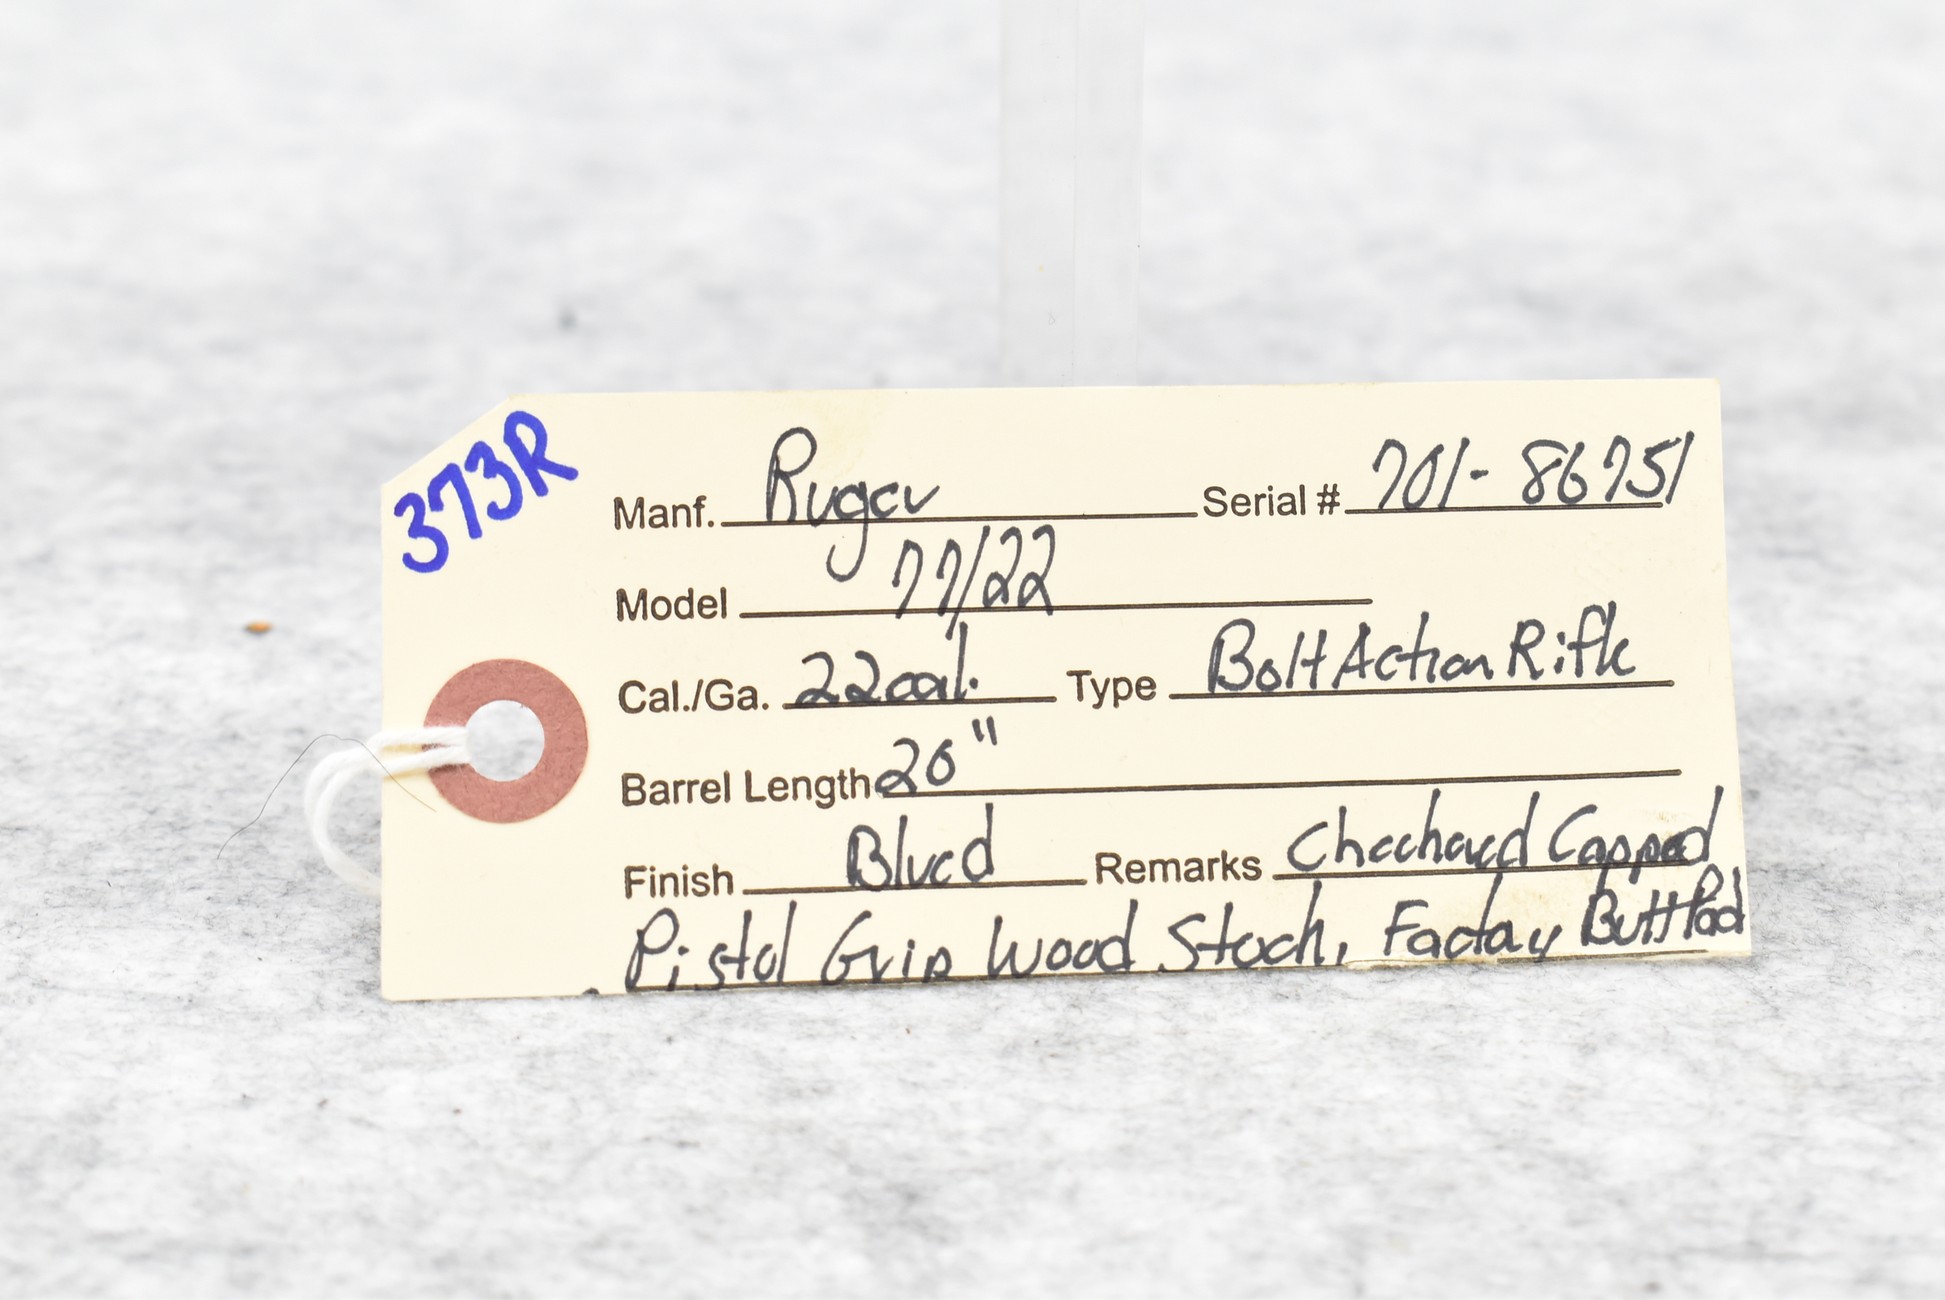 373R
Manf. Ruger Serial # 701-86751
Model 77/22
Cal./Ga. 22 cal. Type Bolt Action Rifle
Barrel Length 20"
Finish Blued Remarks Checkered Capped
Pistol Grip Wood Stock, Factory Butt Pad